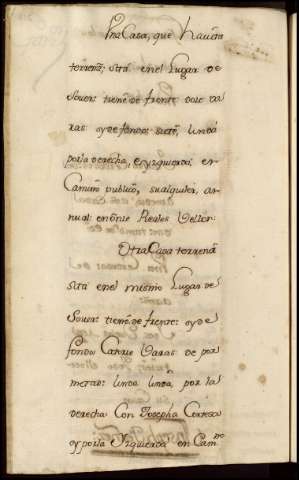 Una Casa, que havita
terrena, sita enel Lugar de
Sover: tiene de frente doce va
ras: oyde fondo: siete, linda
porla derecha, eyzquierda: en
Camino publico, sualquiler, an
nual: en Reales Vellon:
Otra Casa terrena
sita enel mismo Lugar de
Sover: tiene de frente: oyde
fondo: Catorze Varas de por
metad: linda por la
derecha Con Josepha Cortesa
oyporla Yzquierda en Camno